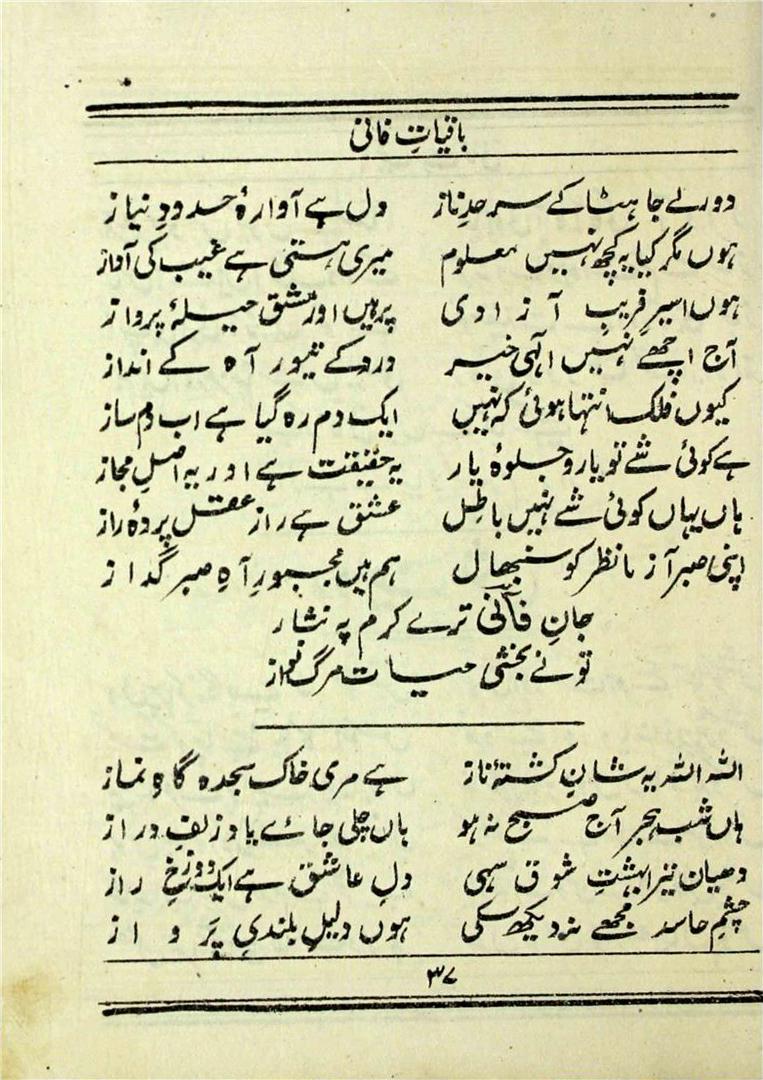 باقیاتِ فانی
دور لے جا ہٹا کے سرحدِ ناز دل ہے آوارۂ حدودِ نیاز
ہوں مگر کیا یہ کچھ نہیں معلوم میری ہستی ہے غیب کی آواز
ہوں اسیرِ فریبِ آزادی پر ہیں اور مشقِ حیلۂ پرواز
آج اچھے نہیں الٰہی خیر درد کے تیور آہ کے انداز
کیوں فلک انتہا ہوئی کہ نہیں ایک دم رہ گیا ہے اب دم ساز
ہے کوئی شے تو یار و جلوۂ یار یہ حقیقت ہے اور یہ اصلِ مجاز
ہاں یہاں کوئی شے نہیں باطل عشق ہے راز عقل پردۂ راز
اپنی صبر آزما نظر کو سنبھال ہم ہیں مجبورِ آہِ صبر گداز
جانِ فانی ترے کرم پہ نثار
تو نے بخشی حیات مرگ نواز
اللہ اللہ یہ شانِ کشتۂ ناز ہے مری خاک سجدہ گاہِ نماز
ہاں شبِ ہجر آج صبح نہ ہو ہاں چلی جائے یادِ زلفِ دراز
دھیان تیرا بہشتِ شوق سہی دلِ عاشق ہے ایک دوزخِ راز
چشمِ حاسد مجھے نہ دیکھ سکی ہوں دلیلِ بلندیِ پرواز
۳۷